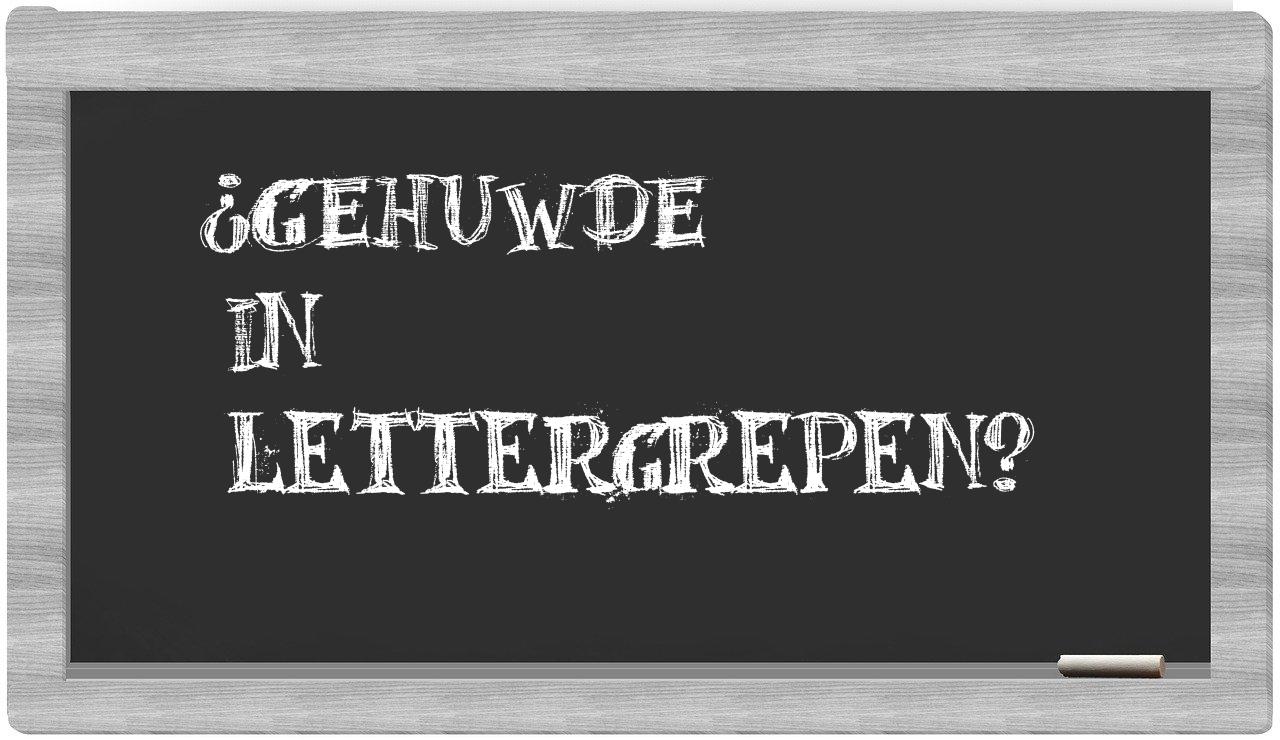 ¿GEHUWDE
IN
LETTERGREPEN?